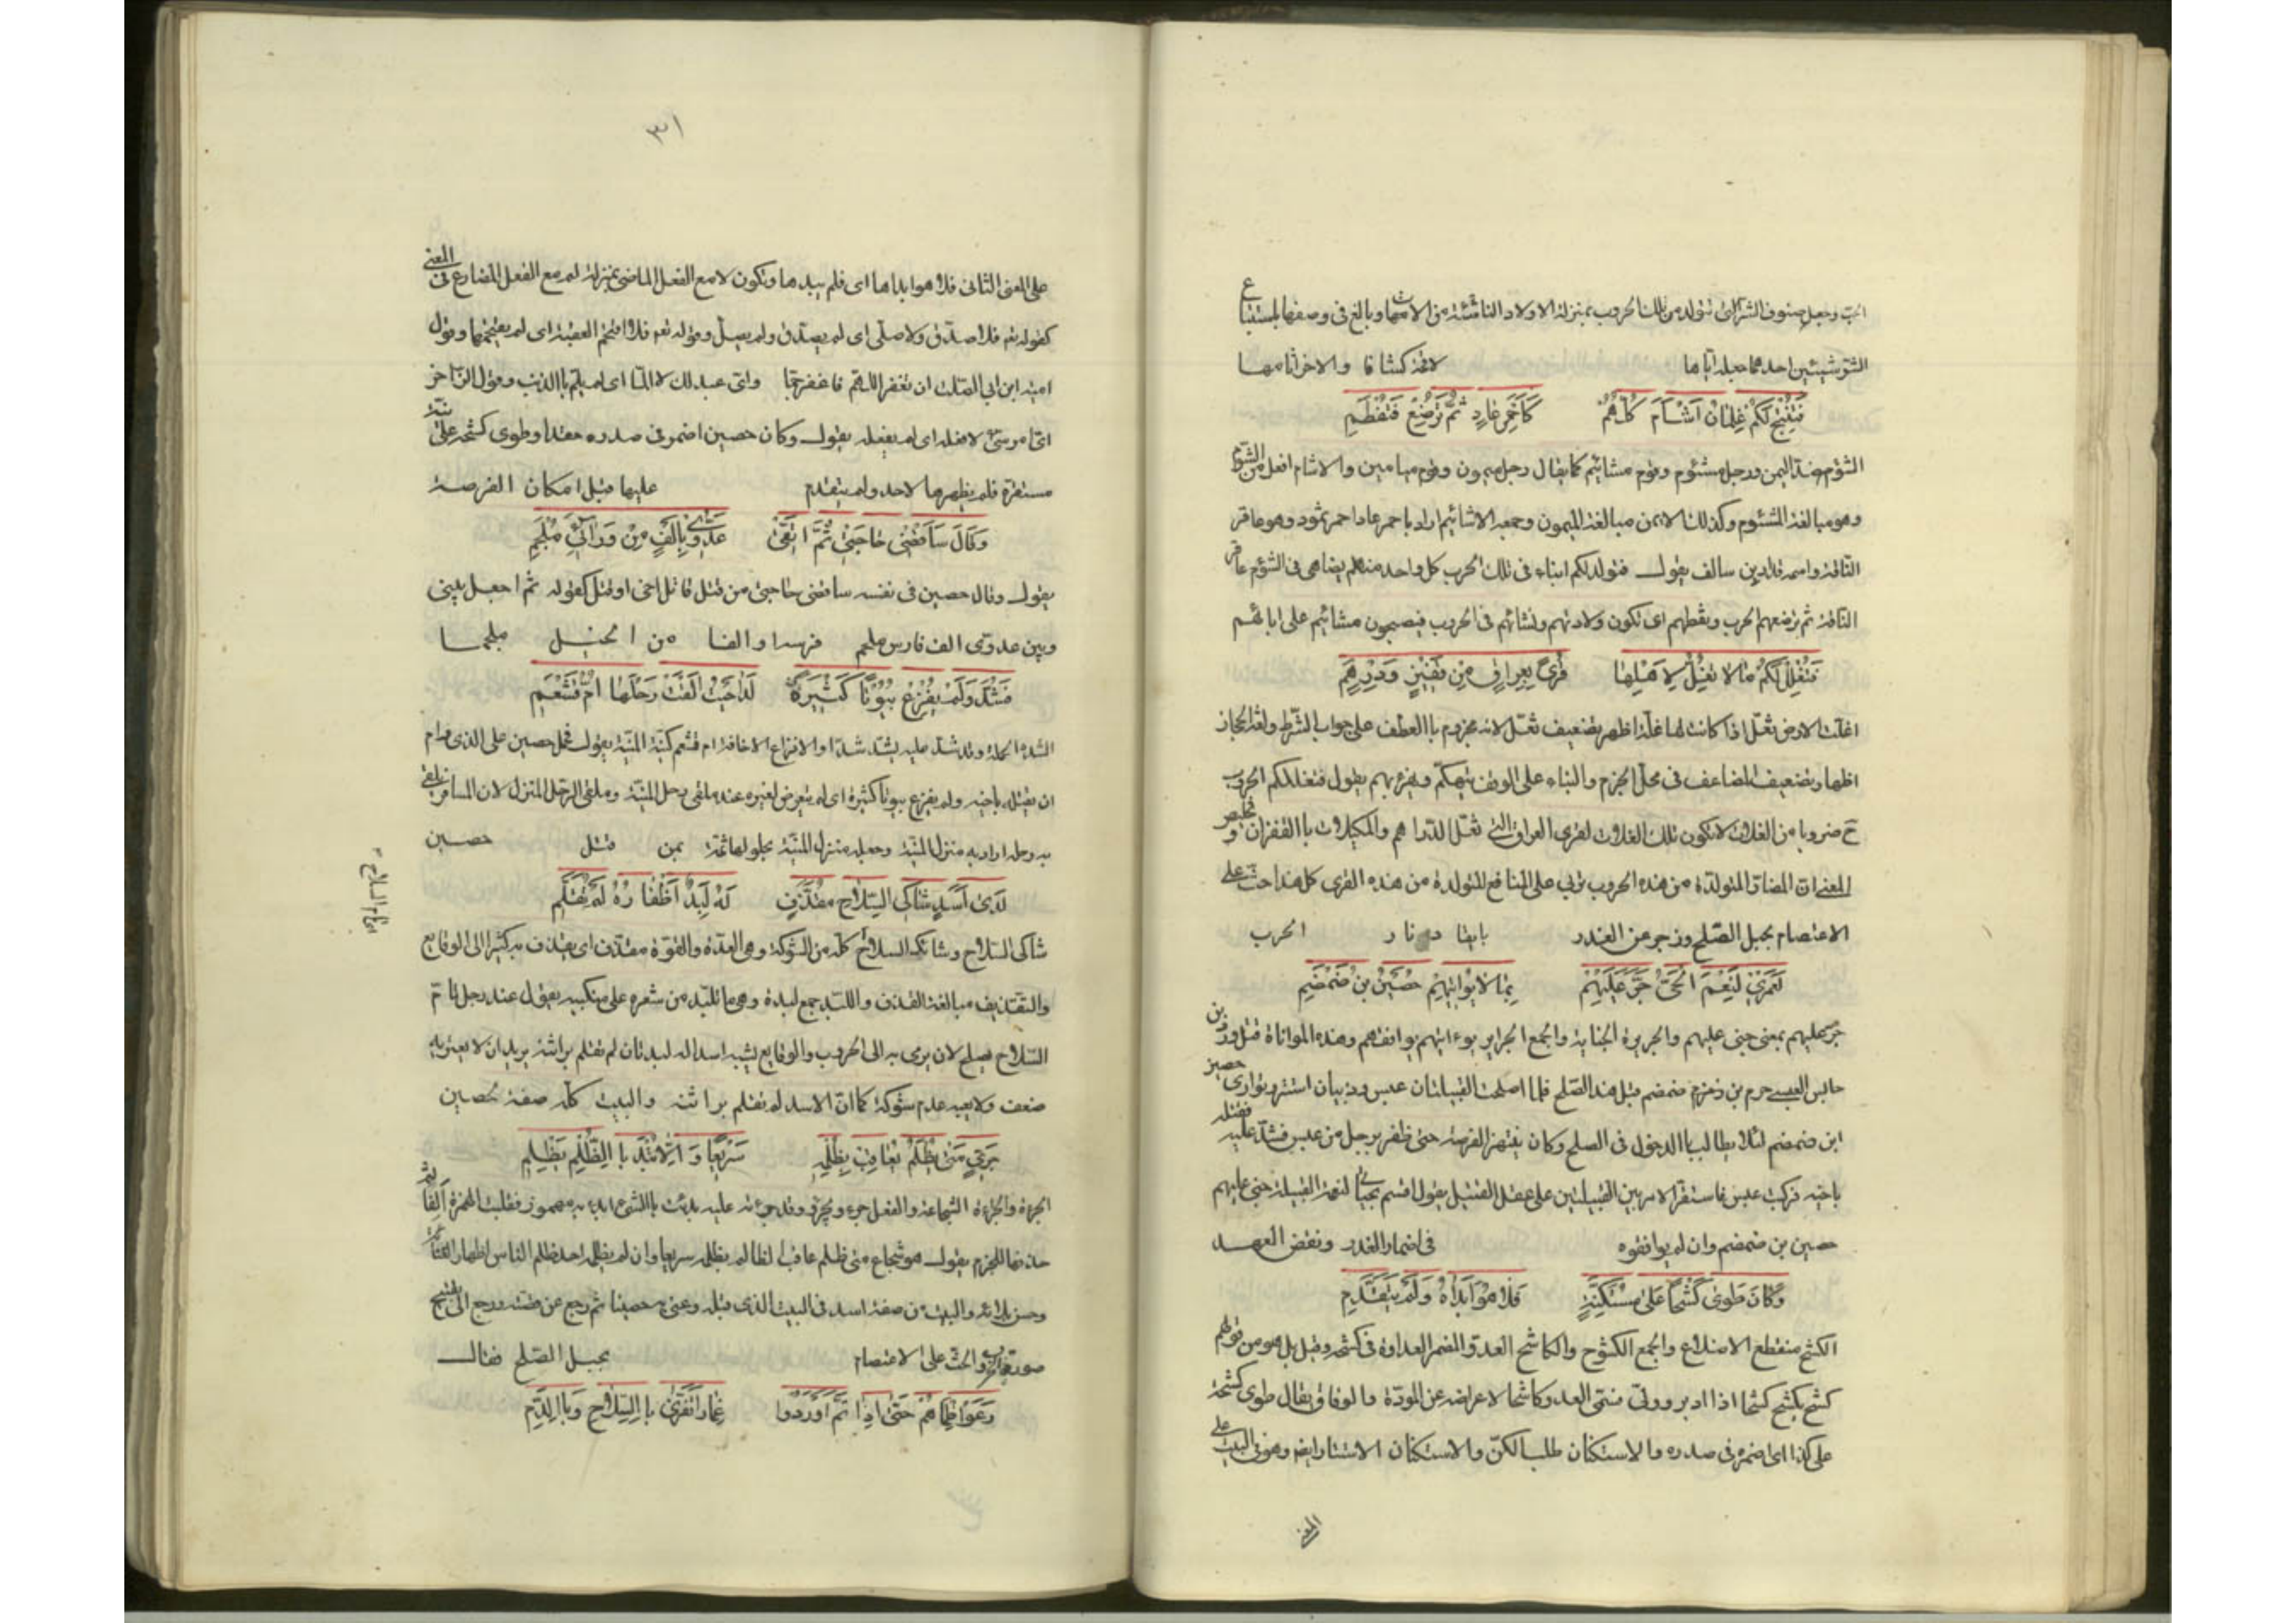 الحب وجعل صنوف الشر التي تتولد من تلك الحروب بمنزلة الاولاد الناشئة من الامهات وبالغ في وصفها باستتباع
الشؤ شيئين احدهما جعله اياها لاقحة كشافا والاخر اتامها
فَتُنْتِجْ لَكُمْ غِلمَانَ اَشْأمَ كُلّهُمْ كَاَحْمَرِ عَادٍ ثُمَّ تُرْضِعْ فَتَفْطِمِ
الشؤم ضد اليمن ورجل مشئوم وقوم مشائيم كما يقال رجل ميمون وقوم ميامين والاشام افعل من الشؤم
وهو مبالغة المشئوم وكذلك الايمن مبالغة الميمون وجمعه الاشائيم اراد باحمر عاد احمر ثمود وهو عاقر
الناقة واسمه قدار بن سالف يقول فتولد لكم ابناء في تلك الحرب كل واحد منهم يضاهي في الشؤم عاقر
الناقة ثم ترضعهم الحرب وتفطمهم اى تكون ولادتهم ونشاتهم في الحروب فيصبحون مشائيم على ابائهم
فَتُغْلِلْ لَكُمْ مَالا تُغِلُّ لِاَهْلِهَا قُرىً بِالعِرَاقِ مِنْ قَفِيْزٍ وَدِرْهَمِ
اغلت الارض تغل اذا كانت لها غلة اظهر تضعيف تغل لانه مجزوم باالعطف على جواب الشرط ولغة الحجاز
اظهار تضعيف المضاعف في محل الجزم والبناء على الوقف يتهكم ويهزء بهم يقول فتغلل لكم الحروب
ح ضروبا من الغلات لا تكون تلك الغلات لقرى العراق التي تغل الدراهم والمكيلات باالقفزان وتلخيص
المعنى ان المضار المتولدة من هذه الحروب تربي على المنافع المتولدة من هذه القرى كل هذا حث على
الاعتصام بحبل الصلح وزجر عن الغدر بايقاد نار الحرب
لَعَمْرِيْ لَنِعْمَ الحَىُّ جَرَّ عَلَيْهِمْ بِمَا لا يُوَاتِيْهِمْ حُصَيْنُ بْنُ ضَمْضَمِ
جر عليهم بمعنى جنى عليهم والجريرة الجناية والجمع الجراير يوءاتيهم يوافقهم وهذه المواتاة قتل ورد بن
حابس العبسي هرم بن ضمضم قبل هذا الصلح فلما اصطلحت القبيلتان عبس وذبيان استتر وتوارى حصين
ابن ضمضم لئلا يطالب باالدخول في الصلح وكان ينتهز الفرصة حتى ظفر برجل من عبس فشد عليه فقتله
باخيه فركبت عبس فاستقر الامر بين القبيلتين على عقل القتيل يقول اقسم بحياتي لنعمت القبيلة جنى عليهم
حصين بن ضمضم وان لم يوافقوه في اضمار الغدر ونقض العهد
وَكَانَ طَوى كَشْحًا عَلى مُسْتَكِنَّةٍ فَلا هُوَ اَبْدَاهُ وَلَمْ يَتَقَدَّمِ
الكشح منقطع الاضلاع والجمع الكشوح والكاشح العدو المضمر العداوة في كشحه وقيل بل هو من قولهم
كشح يكشح كشحا اذا ادبر وولى فسمى العدو كاشحا لاعراضه عن المودة والوفاق يقال طوى كشحه
على كذا اى اضمره في صدره والاستكنان طلب الكن والاستكنان الاستتار ايضا وهو في البيت على
المعنى
٣١
على المعنى الثاني فلا هو ابداها اى فلم يبدها وتكون لا مع الفعل الماضى بمنزلة لم مع الفعل المضارع فى المعنى
كقوله تع فلا صدق ولا صلى اى لم يصدق ولم يصل وقوله تع فلا اقتحم العقبة اى لم يقتحمها وقول
امية ابن ابي الصلت ان تغفر اللهم فاغفر جما واى عبد لك لا الما اى لم يلم باالذنب وقول الراجز
اى امر سيئ لا فعله اى لم يفعله يقول وكان حصين اضمر في صدره حقدا وطوى كشحه على نية
مستترة فلم يظهرها لاحد ولم يتقدم عليها قبل امكان الفرصة
وَكَالَ سَاَقْضِيْ حَاجَتِيْ ثُمَّ اَتَّقِيْ عَدُوِّيْ بِاَلْفٍ مِنْ وَرَائِيَ مُلْجَمِ
يقول وقال حصين في نفسه ساقضى حاجتى من قتل قاتل اخى او قتل كفو له ثم اجعل بينى
وبين عدوى الف فارس ملجم فرسه او الفا من الخيل ملجما
فَشَدَّ وَلَمْ يُفْزِعْ بُيُوْتًا كَثِيْرَةً لَدَى حَيْثُ اَلْقَتْ رَحْلَهَا اُمُّ قَشْعَمِ
الشدة الحملة وقد شد عليه يشد شدا والافزاع الاخافة ام قشعم كنية المنية يقول فحمل حصين على الذى رام
ان يقتله باخيه ولم يفزع بيوتا كثيرة اى لم يتعرض لغيره عند ملقى رحل المنية وملقى الرحل المنزل لان المسافر يلقى
به رحله اراد به منزل المنية وجعله منزل المنية لحلولها ثمة بمن قتل حصين
لَدى اَسَدٍ شَاكِى السِّلَاحِ مُقَذَّفٍ لَهُ لِبَدٌ اَظْفَارُهُ لَمْ تُقَلَّمِ
شاكى السلاح وشائك السلاح كله من الشوكة وهى العدة والقوة مقذف اى يقذف به كثيرا الى الوقايع
والتقذيف مبالغة القذف واللبد جمع لبدة وهى ما تلبد من شعره على منكبيه يقول عند رجل تام
السلاح يصلح لان يرمى به الى الحروب والوقايع يشبه اسدا له لبدتان لم تقلم براثنه يريد ان لا يعتريه
ضعف ولا يعيبه عدم شوكة كما ان الاسد لم تقلم براثنه والبيت كله صفة حصين
جَرِيءٍ مَتى يُظْلَمْ يُعَاقِبْ بِظُلْمِهِ سَرِيْعًا وَاِلَّا يُبْدَ بِاالظُّلْمِ يَظْلِمِ
الجرءة والجرءاة الشجاعة والفعل جرء ويجرؤ وقد جرءته عليه بدئت باالشئ ابدء به مهموز فقلبت الهمزة الفا ثم
حذفها للجزم يقول هو شجاع متى ظلم عاقب الظالم بظلمه سريعا وان لم يظلمه احد ظلم الناس اظهارا لغنائه
وحسن بلائه والبيت من صفة اسد في البيت الذى قبله وعنى به حصينا ثم رجع عن قصته ورجع الى تقبيح
صورة الحرب والحث على الاعتصام بحبل الصلح فقال
رَعَوْا ظِمْأَهُمْ حَتى اِذَا تَمَّ اَوْرَدُوا غِمَارًا تَفَرّى بِاالسِّلَاحِ وَبِاالدَّمِ